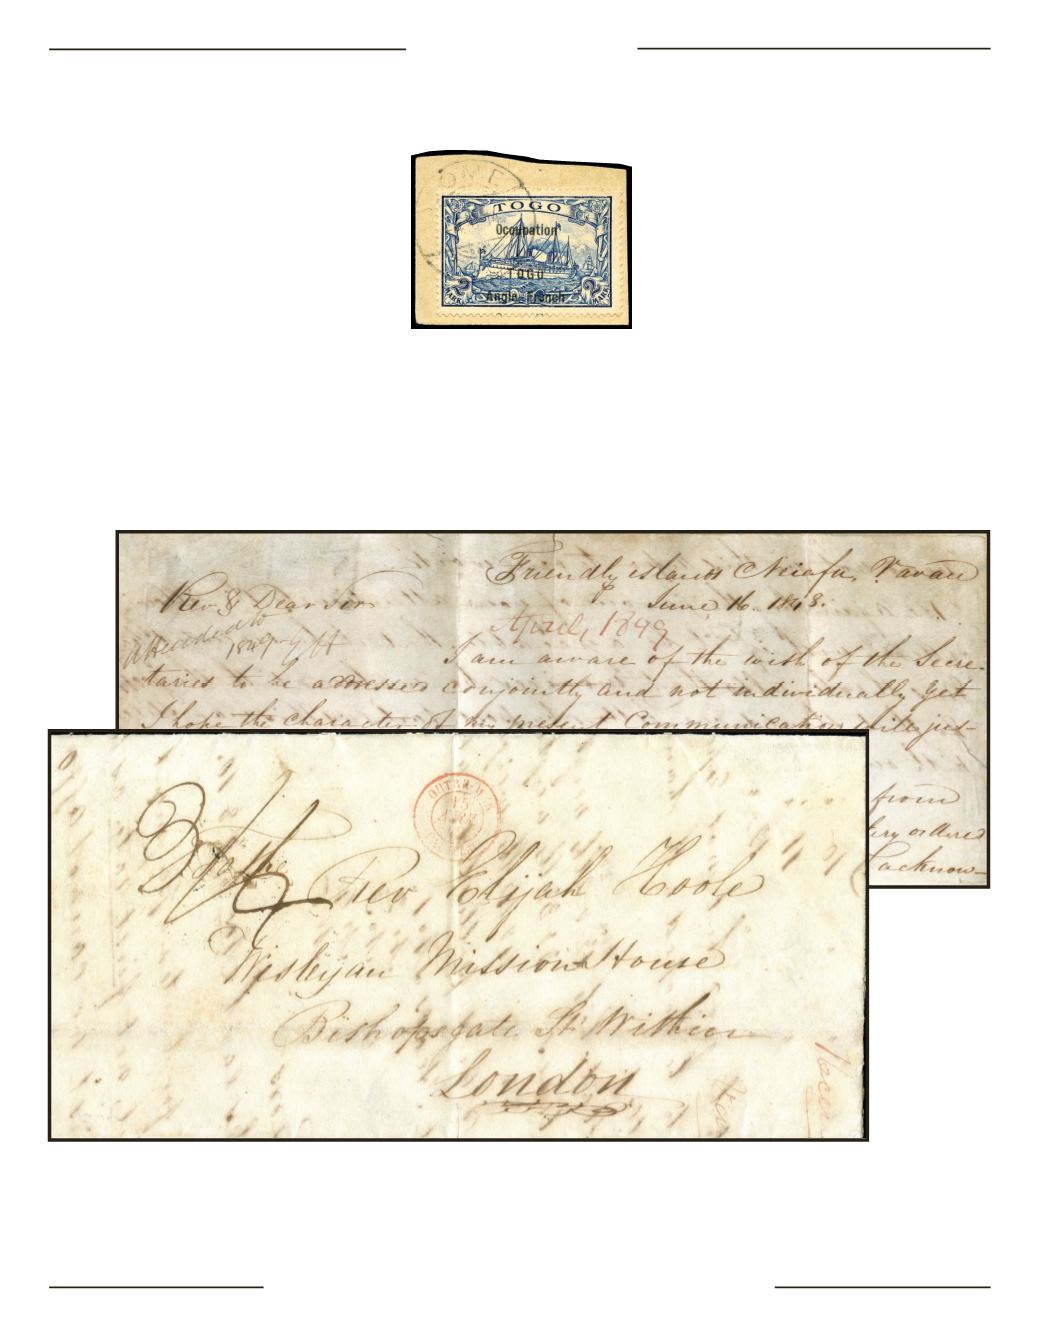 OME
TOGO
Occupation
TOGO
Anglo-French
2 2
MARK MARK
Friendly islands Neiafu Vavau
June 16. 1848.
Rev & Dear Sir
April, 1849
Attended to
I am aware of the wish of the Secre-
taries to be addressed conjointly and not individually yet
I hope the character of my present Communication will jus-
from
ordered
I acknow-
OUTRE-MER
15
Rev Elijah Hoole
Wesleyan Mission House
Bishopsgate St Within
London